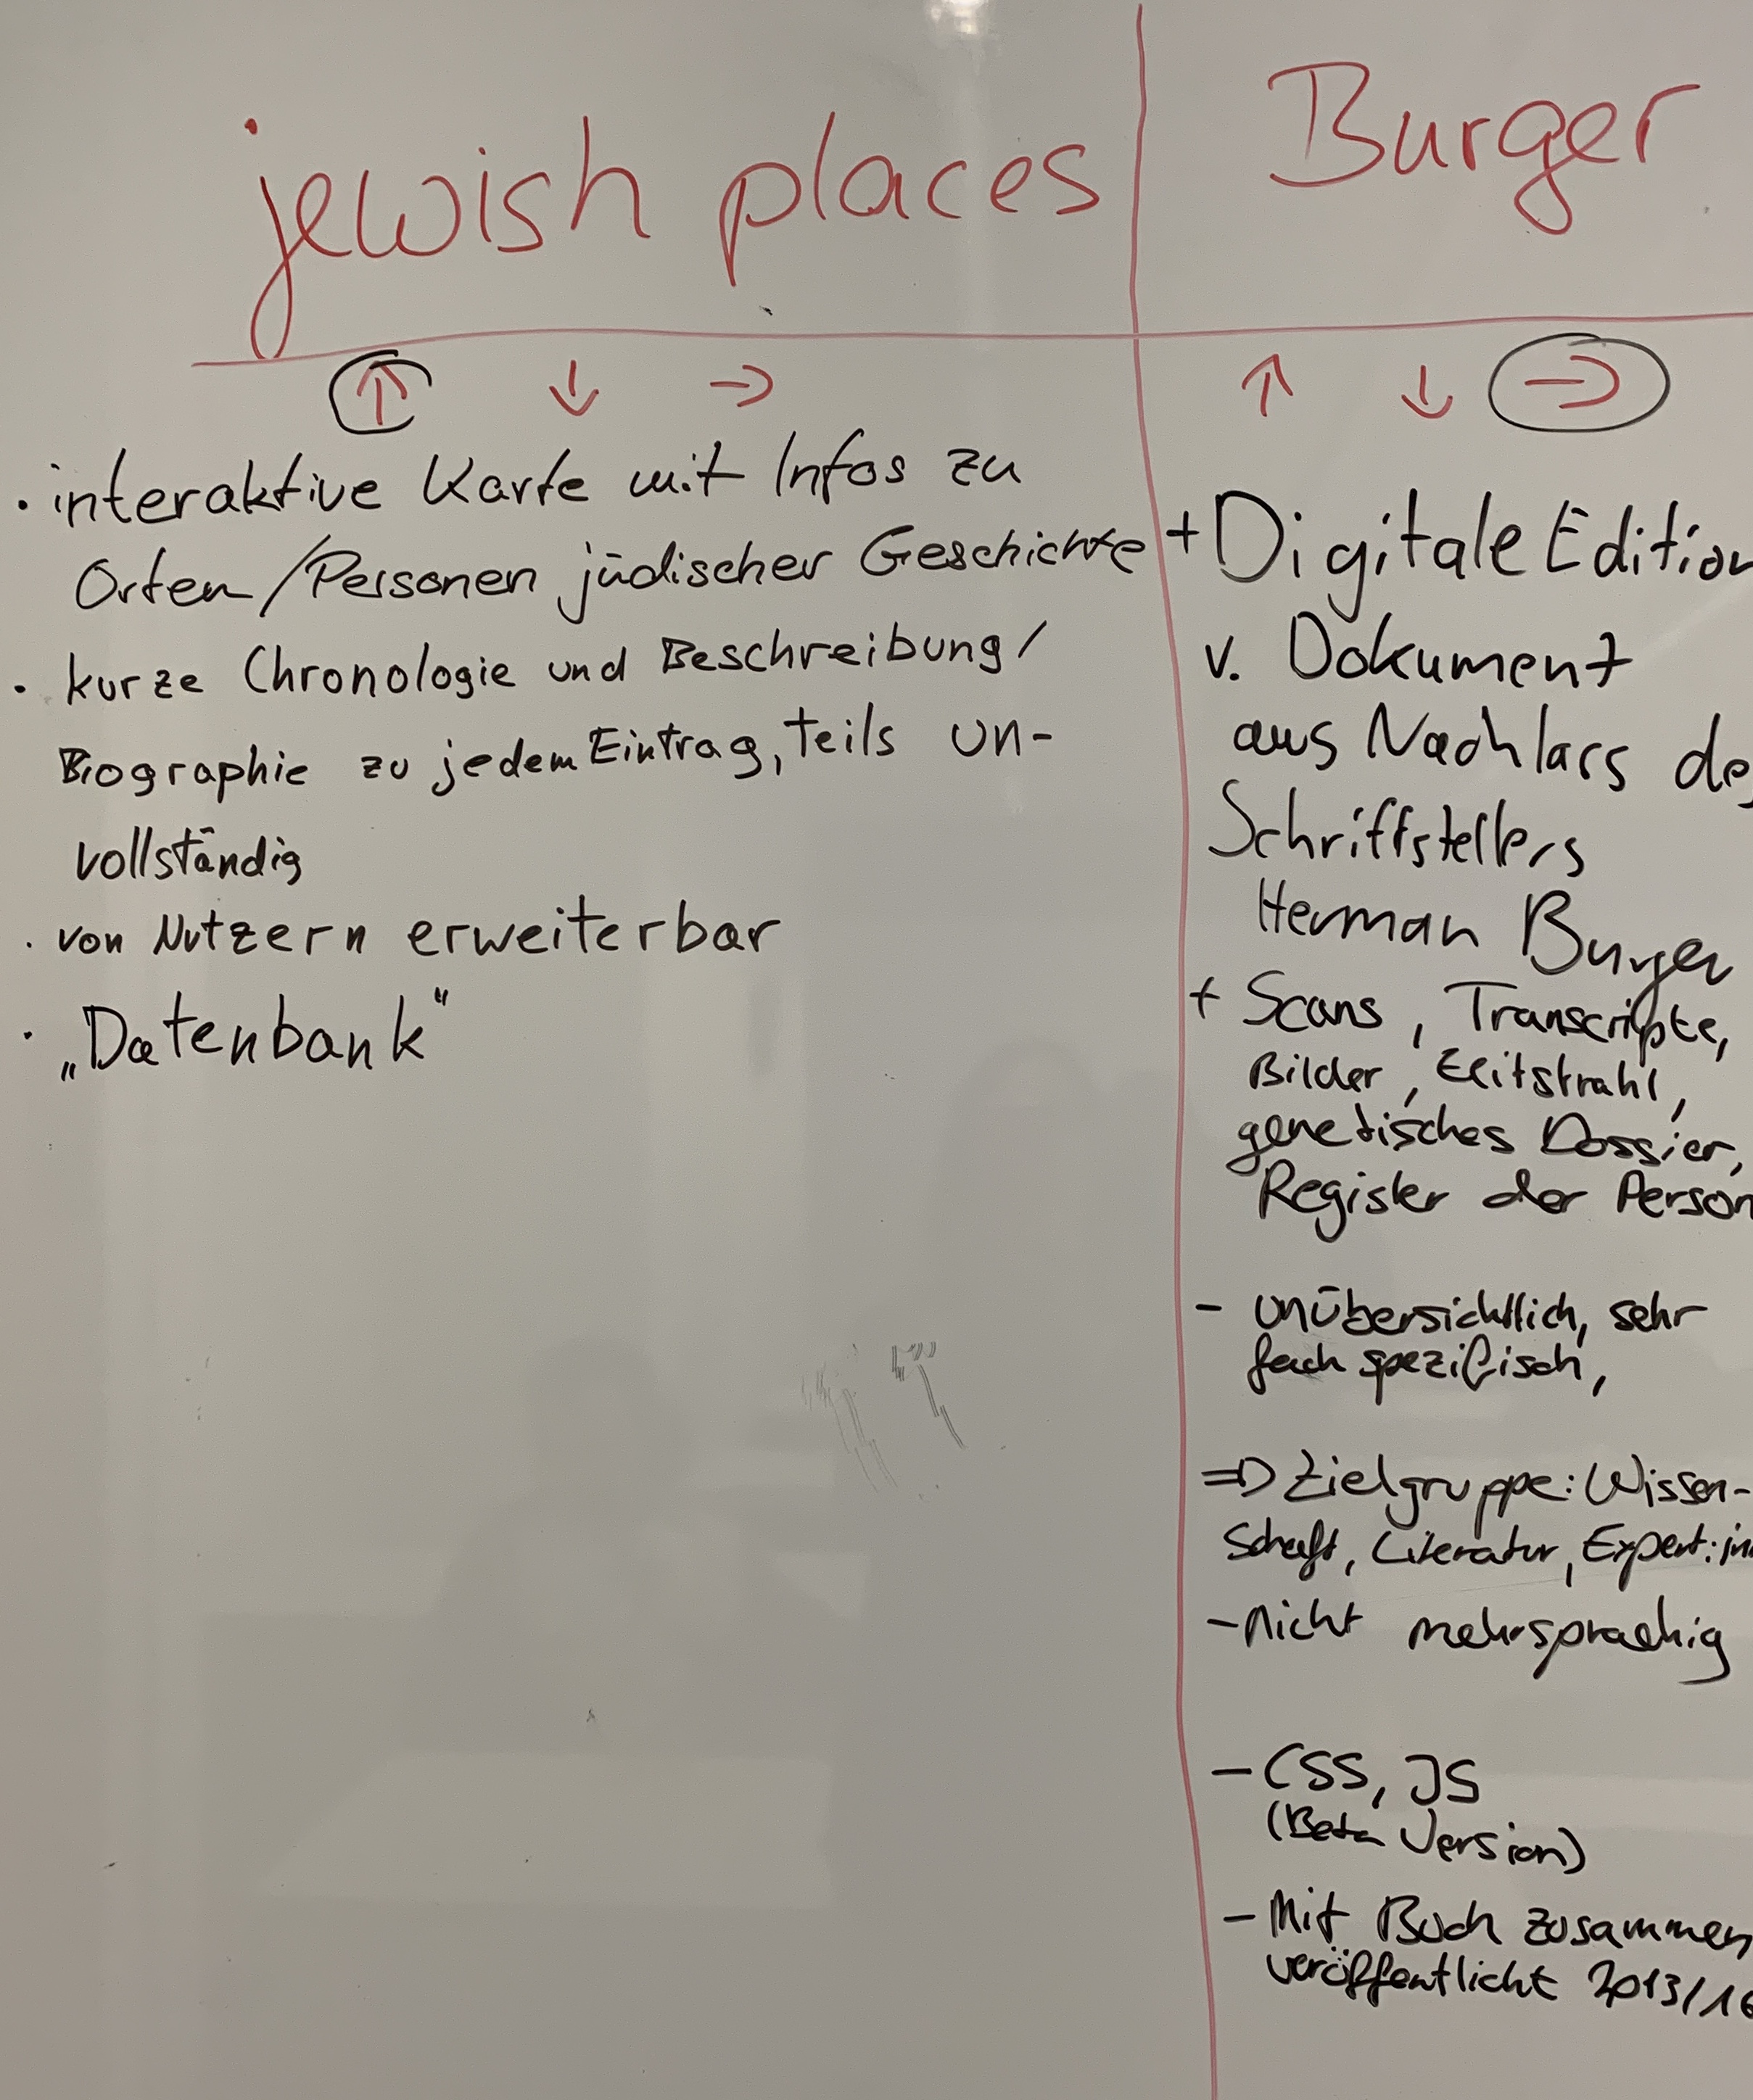 jewish places
↑ ↓ →
· interaktive Karte mit Infos zu
Orten/Personen jüdischer Geschichte
· kurze Chronologie und Beschreibung/
Biographie zu jedem Eintrag, teils un-
vollständig
· von Nutzern erweiterbar
· „Datenbank“
Burger
↑ ↓ →
+ Digitale Edition
v. Dokument
aus Nachlass des
Schriftstellers
Herman Burger
+ Scans, Transcripte,
Bilder, Zeitstrahl,
genetisches Dossier,
Register der Person
- unübersichtlich, sehr
fach spezifisch,
⇒ Zielgruppe: Wissen-
schaft, Literatur, Expert:in
- nicht mehrsprachig
- CSS, JS
(Beta Version)
- Mit Buch zusammen
veröffentlicht 2013/16